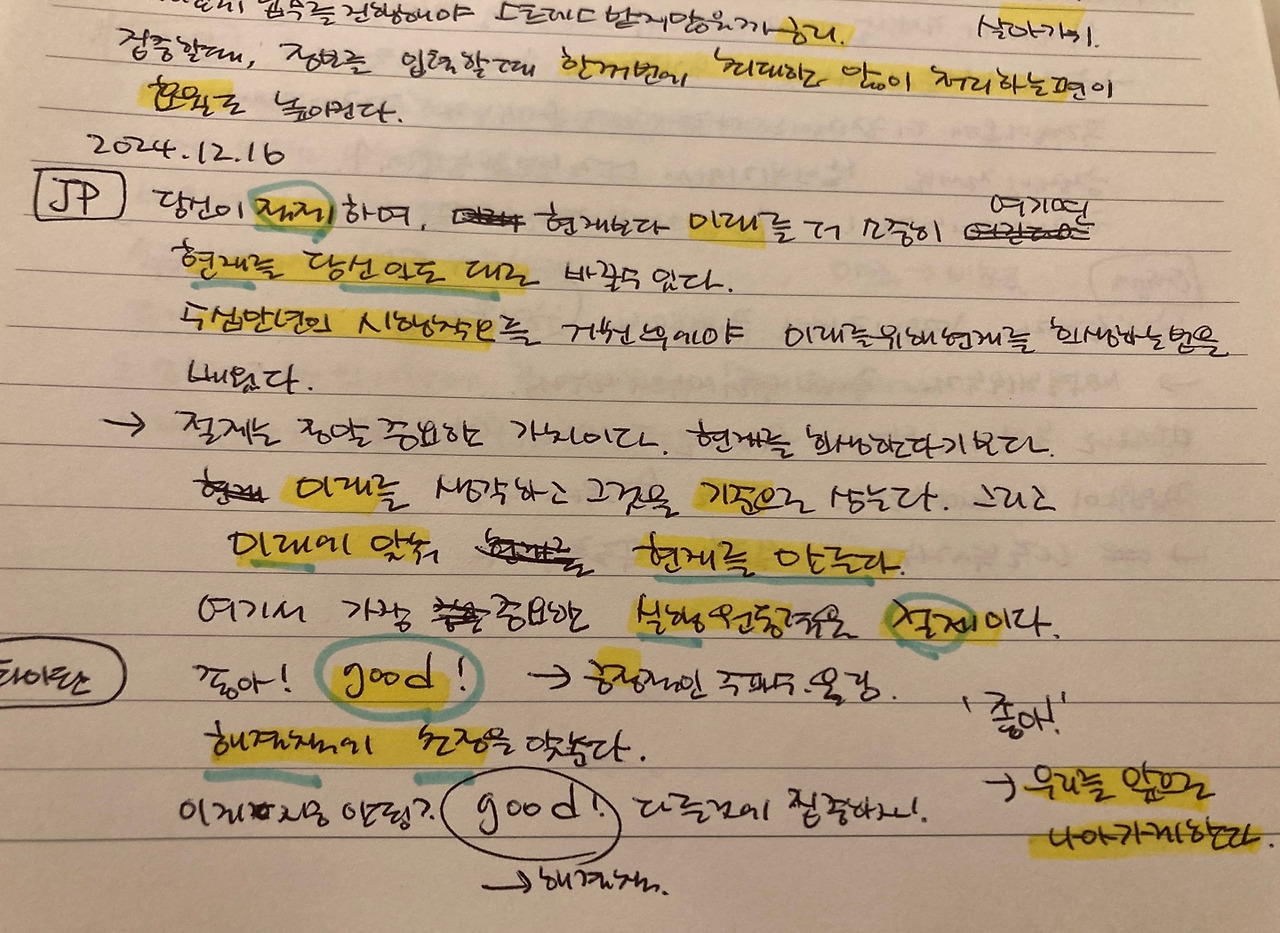 업무를 진행해야 스트레스 받지않을까 승리.
살아가기.
집중할때, 정보를 입력할때 한꺼번에 최대한으로 많이 처리하는편이
효율로 높아진다.
2024.12.16
JP 당신이 절제하여, 현재보다 미래를 더 소중히 여기면
현재를 당신 의도 대로 바꿀수 있다.
수십만년의 시행착오를 거친 후에야 미래를위해현재를 희생하는법을
배웠다.
→ 절제는 정말 중요한 가치이다. 현재를 희생한다기보다.
미래를 생각하고 그것을 기준으로 삼는다. 그리고
미래에 맞춰 현재를 만든다.
여기서 가장 중요한 실행원동력은 절제이다.
좋아! good! → 긍정적인 주파수. 울림.
'좋아!'
해결책에 초점을 맞춘다.
→ 우리를 앞으로
나아가게한다.
이게 지금 안됨? good! 다른것에 집중하자!
→ 해결책.